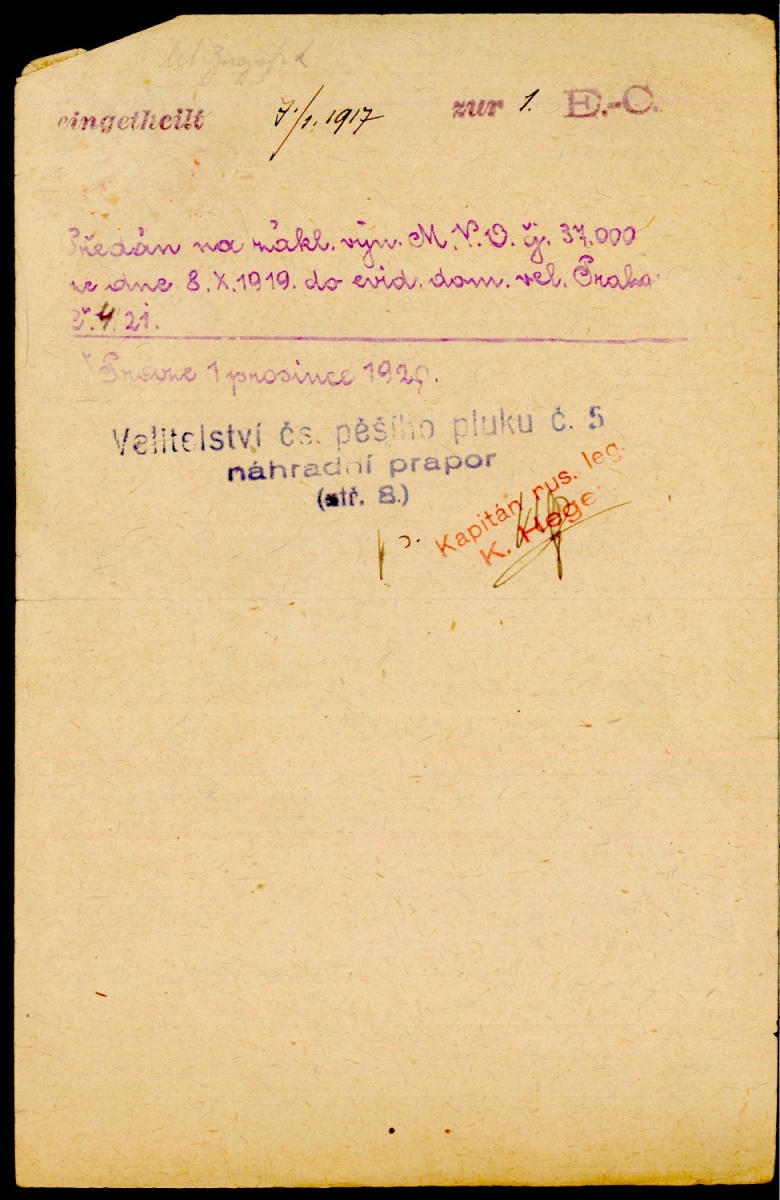 eingetheilt 7./1. 1917 zur 1. E.-C.
Předán na zákl. výn. M.V.O. čj. 37.000
ze dne 8.X.1919. do evid. dom. vel. Praha
č. 4/21.
V 1 prosince 1920.
Velitelství čs. pěšího pluku č. 5
náhradní prapor
(stř. 8.)
Kapitán rus. leg.
K.